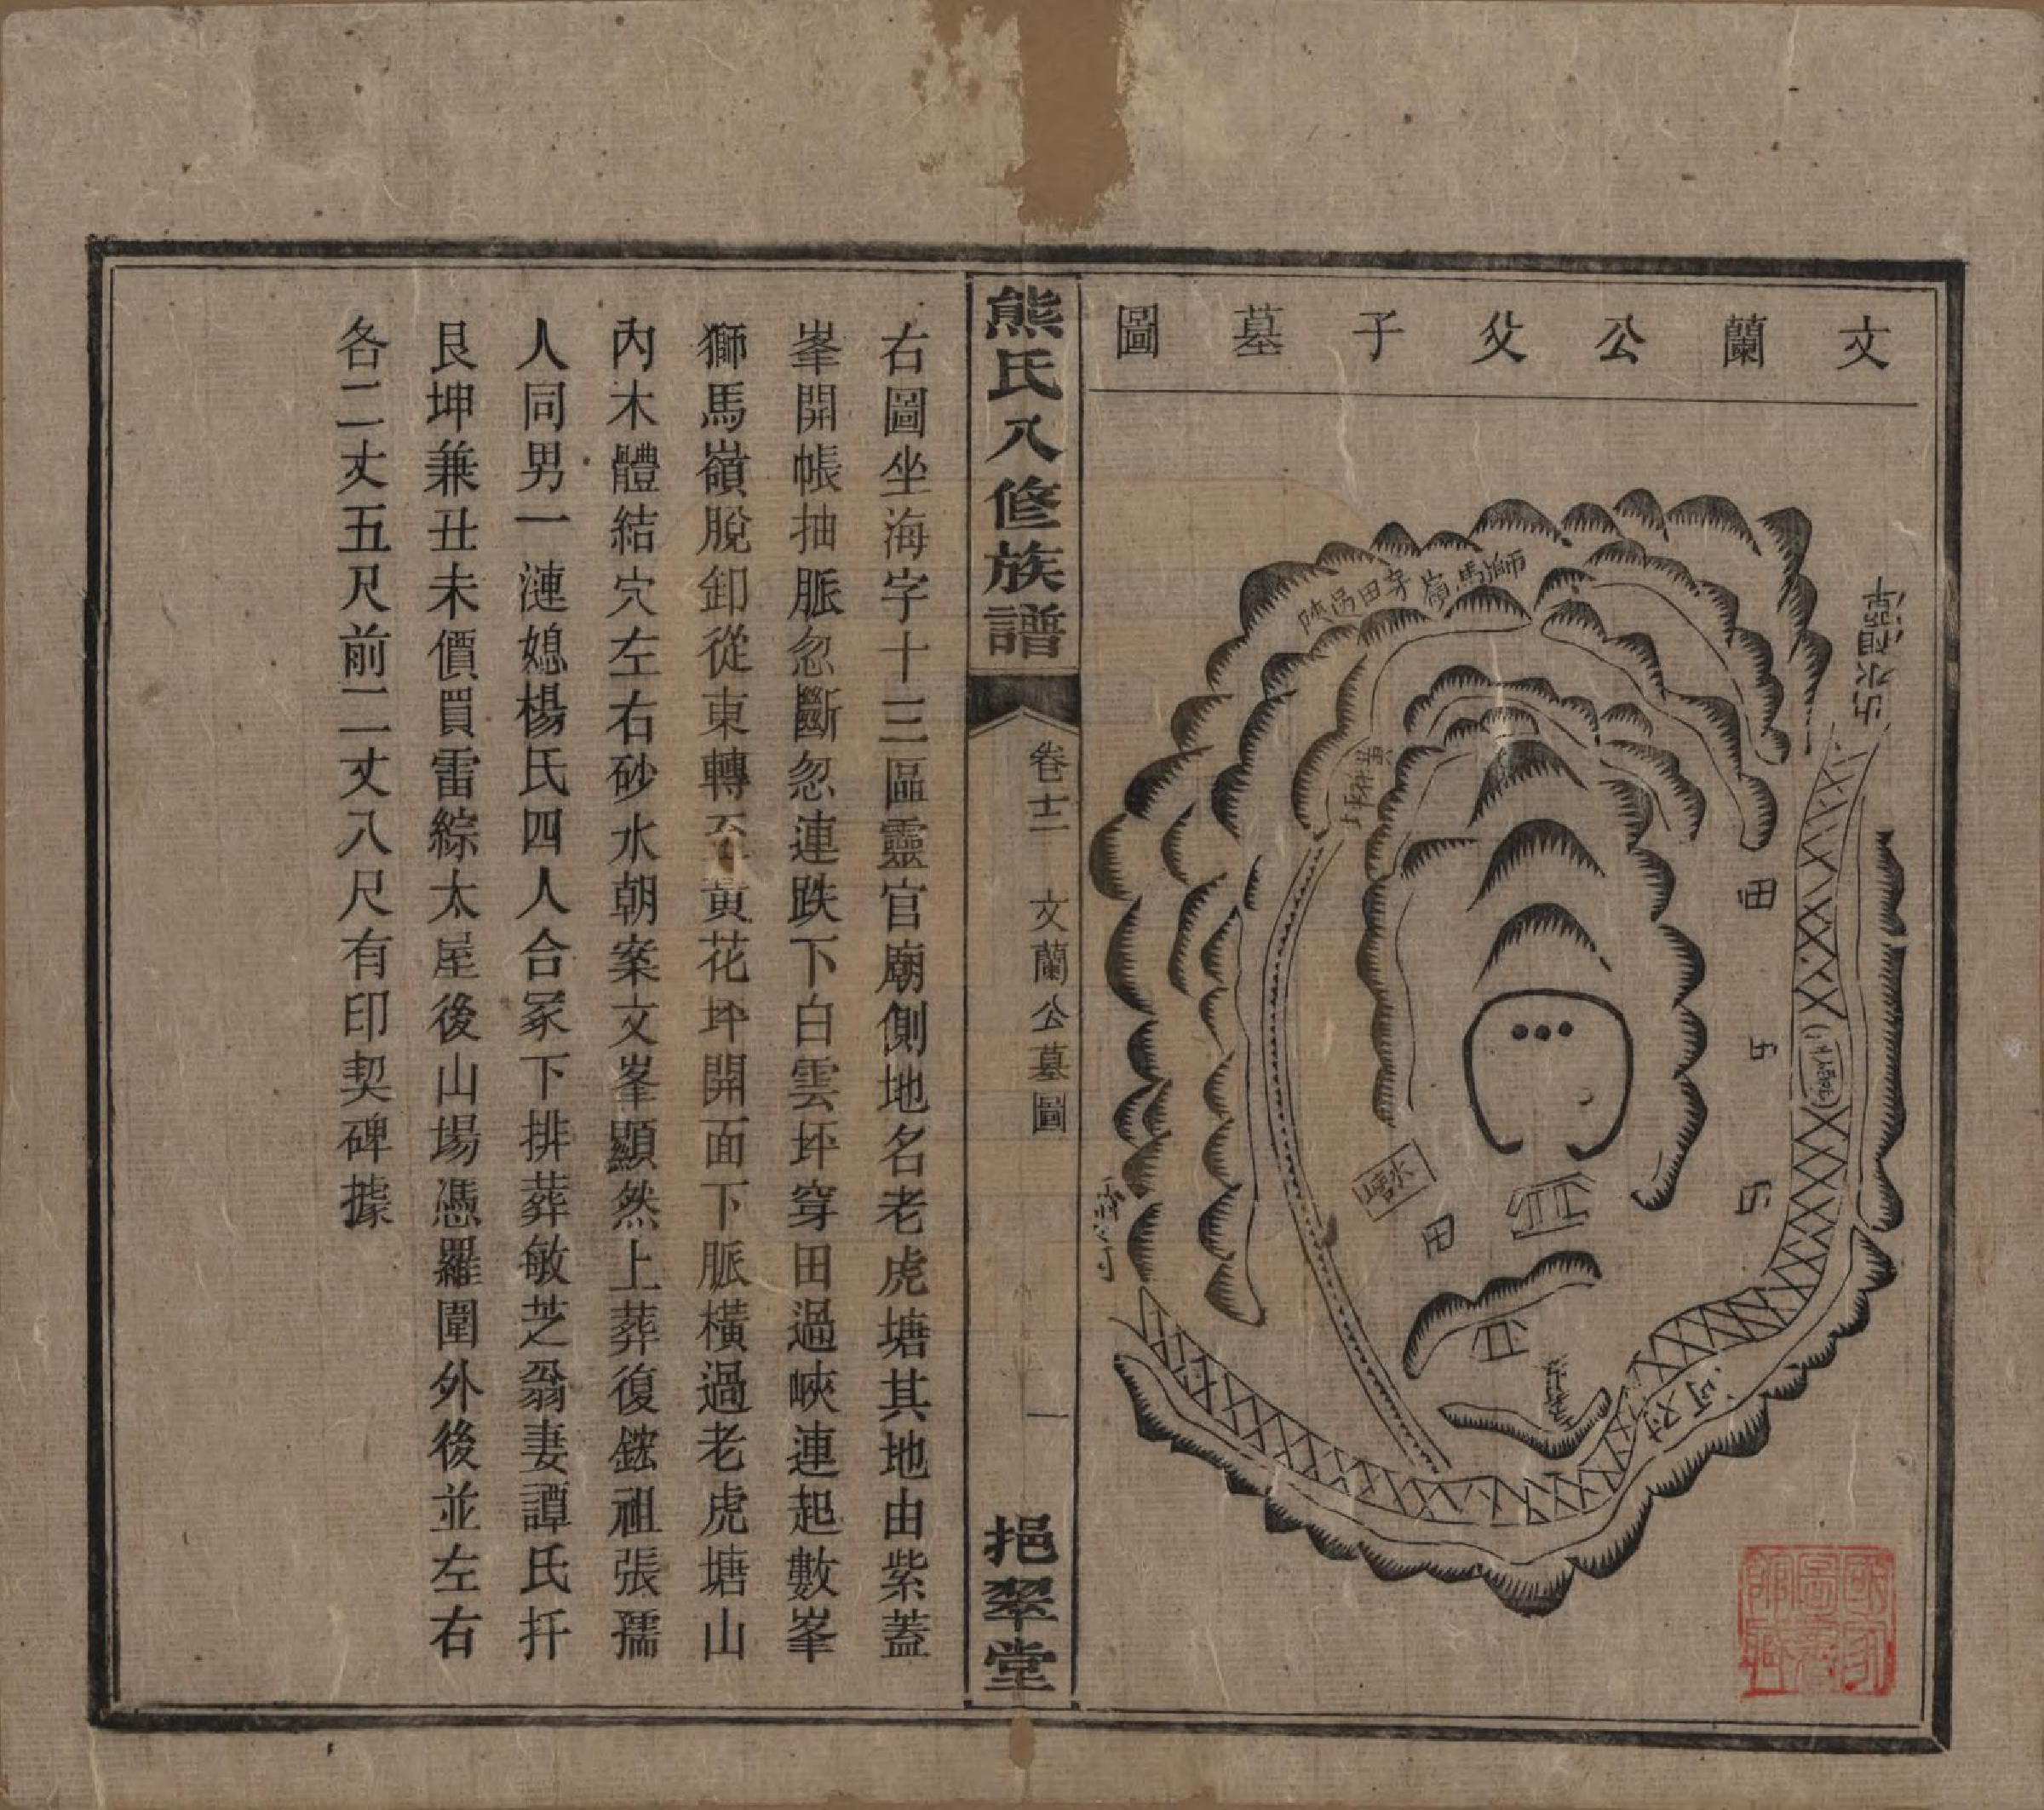 文蘭公父子墓圖
獅馬嶺穿田過陜
黃花坪
田
田
水塘
河对
熊氏八修族譜
卷十二
文蘭公墓圖
一
挹翠堂
右圖坐海字十三區靈官廟側地名老虎塘其地由紫蓋
峯開帳抽脈忽斷忽連跌下白雲坪穿田過峽連起數峯
獅馬嶺脫卸從東轉至黃花坪開面下脈橫過老虎塘山
內木體結穴左右砂水朝案文峯顯然上葬復鋐祖張孺
人同男一漣媳楊氏四人合冢下排葬敏芝翁妻譚氏扦
艮坤兼丑未價買雷綜太屋後山場憑羅圍外後並左右
各二丈五尺前二丈八尺有印契碑據
國家圖書館藏